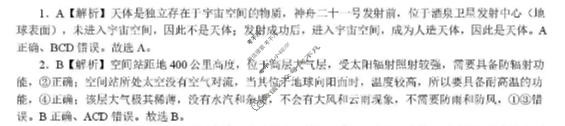 1. A【解析】天体是独立存在于宇宙空间的物质，神舟二十一号发射前，位于酒泉卫星发射中心（地
球表面），未进入宇宙空间，因此不是天体；发射成功后，进入宇宙空间，成为人造天体，因此是天体。A
正确、BCD 错误。故选 A。
2. B【解析】空间站距地 400 公里高度，位于高层大气层，受太阳辐射照射较强，需要具备防辐射功
能，②正确；空间站所处太空没有空气对流，当其位于地球向阳面时，温度较高，所以要具备耐高温的功
能，④正确；该层大气极其稀薄，没有水汽和杂质，不会有大风和云雨现象，不需要防雨和防风，①③错
误。B 正确、ACD 错误。故选 B。